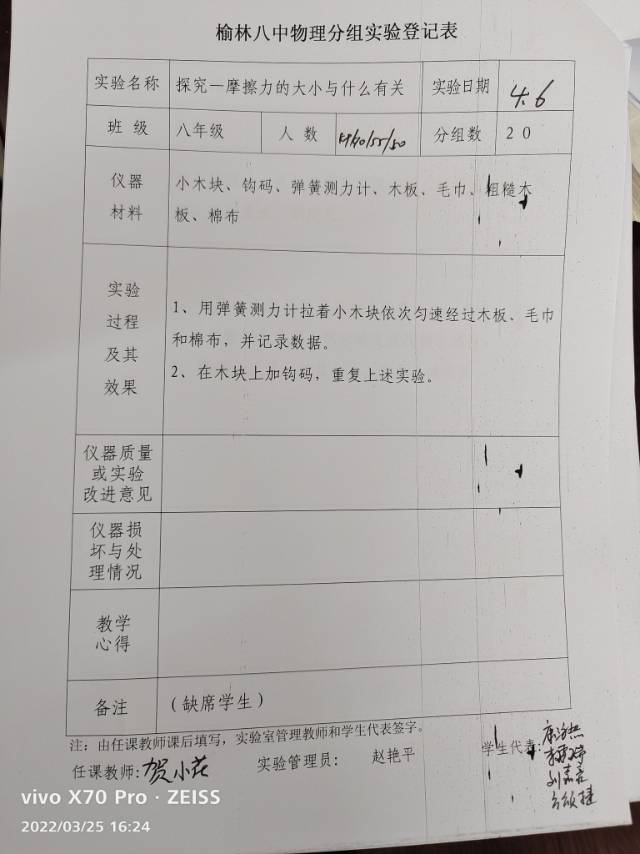 榆林八中物理分组实验登记表
实验名称 探究—摩擦力的大小与什么有关 实验日期 4.6
班 级 八年级 人 数 分组数 20
仪器
材料
小木块、钩码、弹簧测力计、木板、毛巾、粗糙木
板、棉布
实验
过程
及其
效果
1、用弹簧测力计拉着小木块依次匀速经过木板、毛巾
和棉布，并记录数据。
2、在木块上加钩码，重复上述实验。
仪器质量
或实验
改进意见
仪器损
坏与处
理情况
教学
心得
备注 （缺席学生）
注：由任课教师课后填写，实验室管理教师和学生代表签字。
任课教师：贺小花 实验管理员： 赵艳平 学生代表：
vivo X70 Pro · ZEISS
2022/03/25 16:24